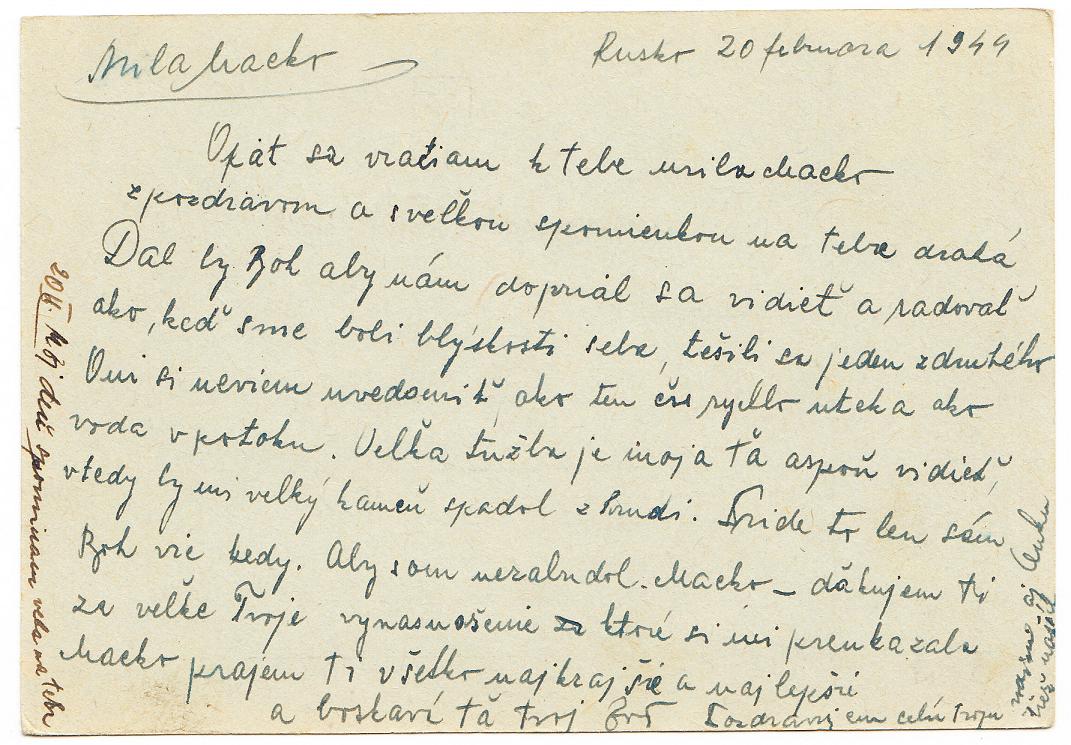 Milá Macko
Rusko 20 februara 1944
Opät sa vraciam k tebe milá Macko
z pozdravom a sveľkou spomienkou na tebe drahá
Dal by Boh aby nám doprial sa vidieť a radovať
ako, keď sme boli blýskosti seba, tešili sa jeden zdruhého
Oni si neviem uvedomiť, ako ten čas rychlo uteka ako
voda v potoku. Veľka tužba je moja ťa aspoň vidieť,
vtedy by mi velký kameň spadol z hrudi. Príde to len sám
Boh vie kedy. Aby som nezabudol. Macko – dǎkujem ti
za velke Tvoje vynasnošenie ktoré si mi preukazala
Macko prajem ti všetko najkrajšie a najlepšie
a boskavi ťa tvoj Pozdravujem celú Tvoju
20 II. Môj deň spominam vela na tebe
aj Anku